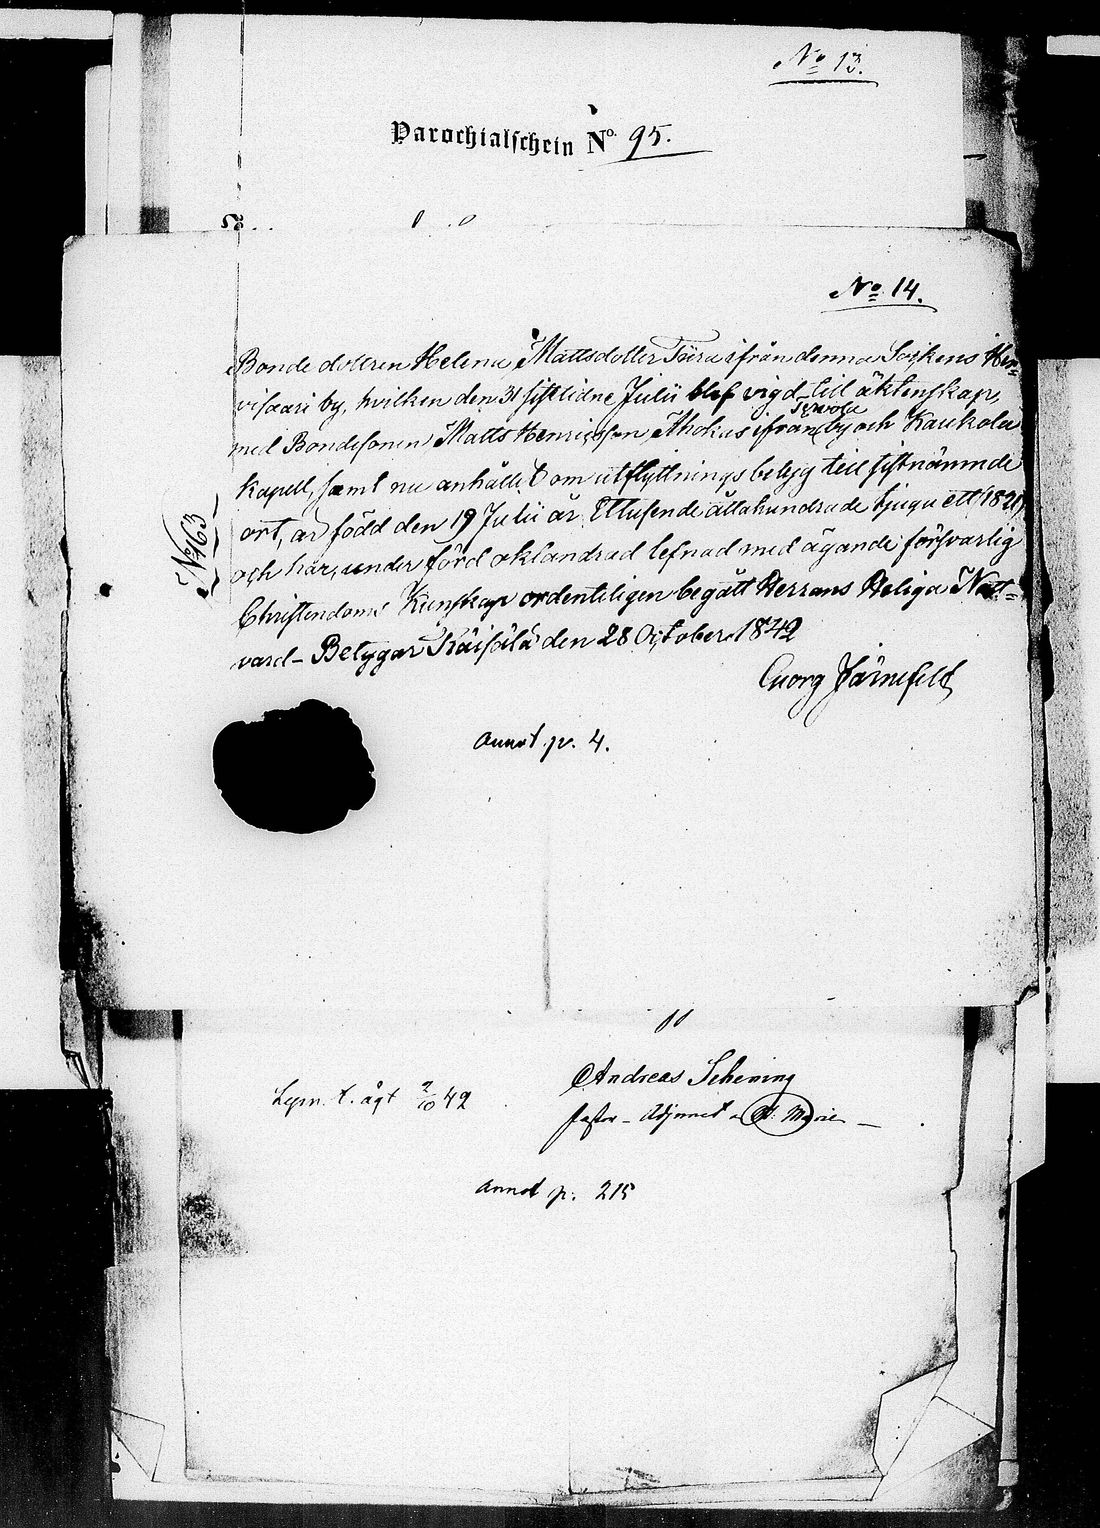 No 13.
Parochialschein No. 95.
No 14.
Bonde dottren Helena Mattsdotter Türa ifrån denna Sockens Hir-
visaari by, hvilken den 31 sistlidne Julii blef vigd till äktenskap,
med Bondesonen Matts Henricsson Ahokas ifrån Tervola by och Kaukola
Kapell, samt nu anhållit om utflyttnings betyg till sistnämnde
ort, är född den 19 Julii år Ettusende åttahundrade tjugu ett (1821)
och har, under förd oklandrad lefnad med ägande försvarlig
Christendoms Kunskap ordenteligen begått Herrans Heliga Natt-
vard- Betygar Räisälä den 28 October 1842
Georg Järnefelt
No 163
Annot p. 4.
Andreas Schening
Pastor - Adjunct - St. Marie -
Lysn. t. ägt 2/10 42
Annot p. 215